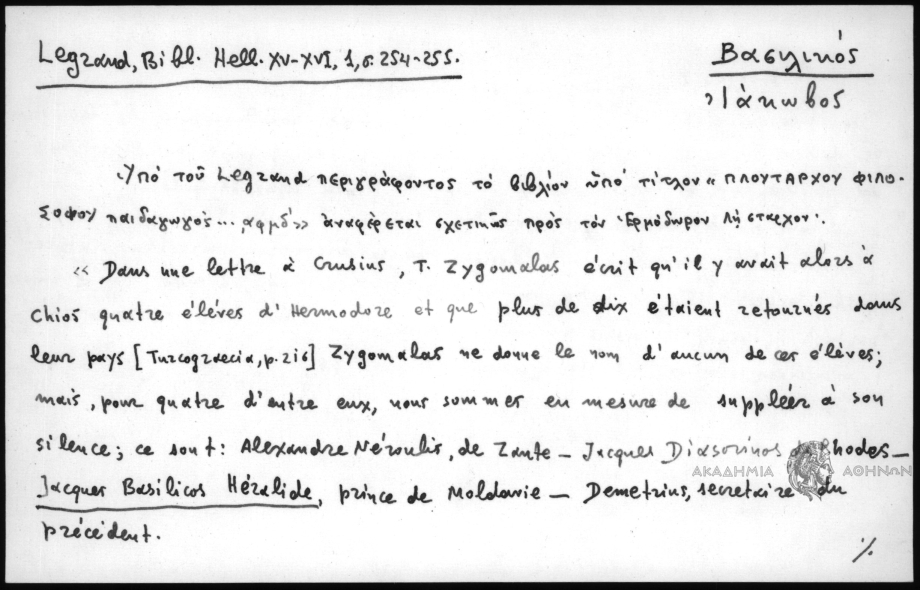 Legrand, Bibl. Hell. XV-XVI, 1, σ. 254-255.
Βασιλικός
Ἰάκωβος
Ὑπό τοῦ Legrand περιγράφοντος τό βιβλίον ὑπό τίτλον « ΠΛΟΥΤΑΡΧΟΥ ΦΙΛΟ-
ΣΟΦΟΥ παιδαγωγός ... ͵αφμδ΄» ἀναφέρεται σχετικῶς πρός τόν Ἑρμόδωρον Λήσταρχον:
« Dans une lettre à Crusius, T. Zygomalas écrit qu'il y avait alors à
Chios quatre élèves d'Hermodore et que plus de dix étaient retournés dans
leur pays [Turcograecia, p. 216] Zygomalas ne donne le nom d'aucun de ces élèves;
mais, pour quatre d'entre eux, nous sommes en mesure de suppléer à son
silence; ce sont: Alexandre Néroulis, de Zante — Jacques Diasorinos de Rhodes —
Jacques Basilicos Héralide, prince de Moldavie — Demetrius, secretaire du
précédent.
ΑΚΑΔΗΜΙΑ ΑΘΗΝΩΝ
./.